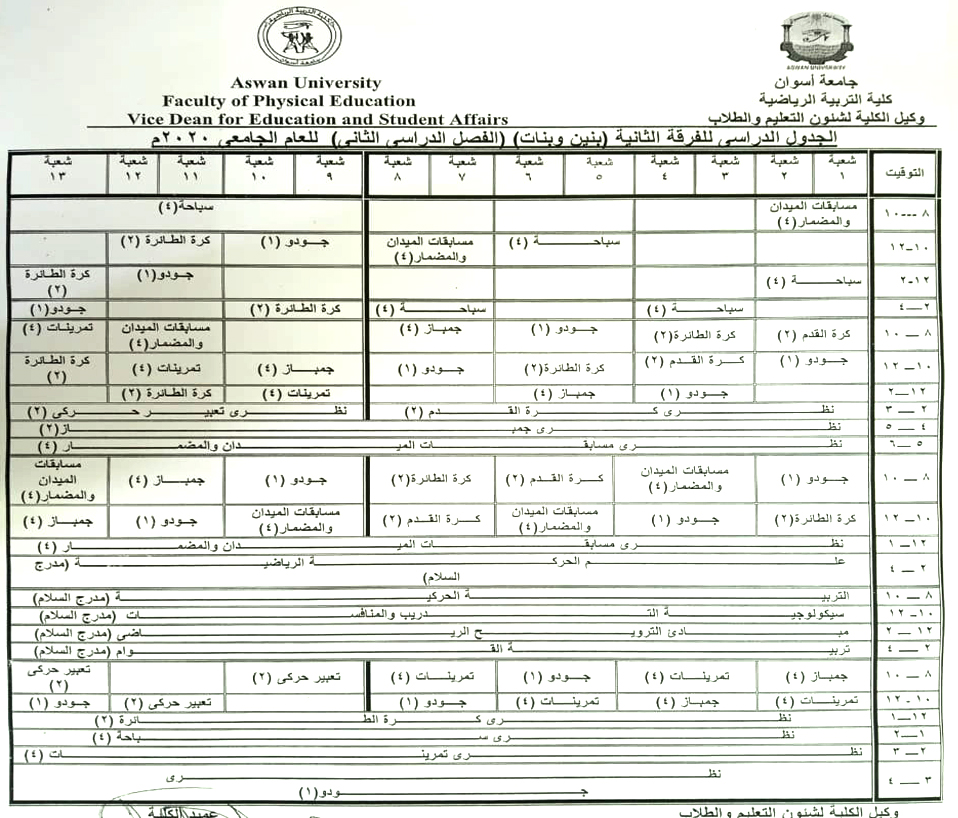 ASWAN UNIVERSITY
Aswan University
Faculty of Physical Education
Vice Dean for Education and Student Affairs
جامعة أسوان
كلية التربية الرياضية
وكيل الكلية لشئون التعليم والطلاب
الجدول الدراسى للفرقة الثانية (بنين وبنات) (الفصل الدراسى الثانى) للعام الجامعى ٢٠٢٠م
التوقيت شعبة ١ شعبة ٢ شعبة ٣ شعبة ٤ شعبة ٥ شعبة ٦ شعبة ٧ شعبة ٨ شعبة ٩ شعبة ١٠ شعبة ١١ شعبة ١٢ شعبة ١٣
٨ـــ١٠ مسابقات الميدان والمضمار(٤) سباحة(٤)
١٠ــ١٢ سباحـــة (٤) مسابقات الميدان والمضمار(٤) جـودو (١) كرة الطائرة (٢)
١٢ــ٢ سباحـــة (٤) جـودو(١) كرة الطائرة (٢)
٢ــ٤ سباحـــة (٤) سباحـــة (٤) كرة الطائرة (٢) جـودو(١)
٨ــ١٠ كرة القدم (٢) كرة الطائرة(٢) جـودو (١) جمباز (٤) مسابقات الميدان والمضمار(٤) تمرينات (٤)
١٠ــ١٢ جـودو (١) كـرة القـدم (٢) كرة الطائرة (٢) جـودو (١) جمبـاز (٤) تمرينات (٤) كرة الطائرة (٢)
١٢ــ٢ جـودو (١) جمبـاز (٤) تمرينات (٤) كرة الطائرة (٢)
٢ــ٣ نظـــرى كـــرة القـــدم (٢) نظـــرى تعبيـــر حـــركى (٢)
٤ــ٥ نظـــرى جمبـــاز(٢)
٥ــ٦ نظـــرى مسابقـــات الميـــدان والمضمـــار (٤)
٨ــ١٠ جـودو (١) مسابقات الميدان والمضمار(٤) كـرة القـدم (٢) كرة الطائرة(٢) جـودو (١) جمبـاز (٤) مسابقات الميدان والمضمار(٤)
١٠ــ١٢ كرة الطائرة(٢) جـودو (١) مسابقات الميدان والمضمار(٤) كـرة القدم (٢) مسابقات الميدان والمضمار(٤) جـودو (١) جمبـاز (٤)
١٢ــ١ نظـــرى مسابقـــات الميـــدان والمضمـــار (٤)
٢ــ٤ علـــم الحركـــة الرياضيـــة (مدرج السلام)
٨ــ١٠ التربيـــة الحركيـــة (مدرج السلام)
١٠ــ١٢ سيكولوجيـــة التـــدريب والمنافســـات (مدرج السلام)
١٢ــ٢ مبـــادئ الترويـــح الريـــاضى (مدرج السلام)
٢ــ٤ تربيـــة القـــوام (مدرج السلام)
٨ــ١٠ جمباز (٤) تمرينـات (٤) جـودو (١) تمرينـات (٤) تعبير حركى (٢) تعبير حركى (٢)
١٠ــ١٢ تمرينـات (٤) جمبـاز (٤) تمرينـات (٤) جـودو (١) تعبير حركى (٢) جـودو (١)
١٢ــ١ نظـــرى كـــرة الطـــائرة (٢)
١ــ٢ نظـــرى ســـباحة (٤)
٢ــ٣ نظـــرى تمرينـــات (٤)
٣ــ٤ نظـــرى جـــودو(١)
وكيل الكلية لشئون التعليم والطلاب
عميد الكلية